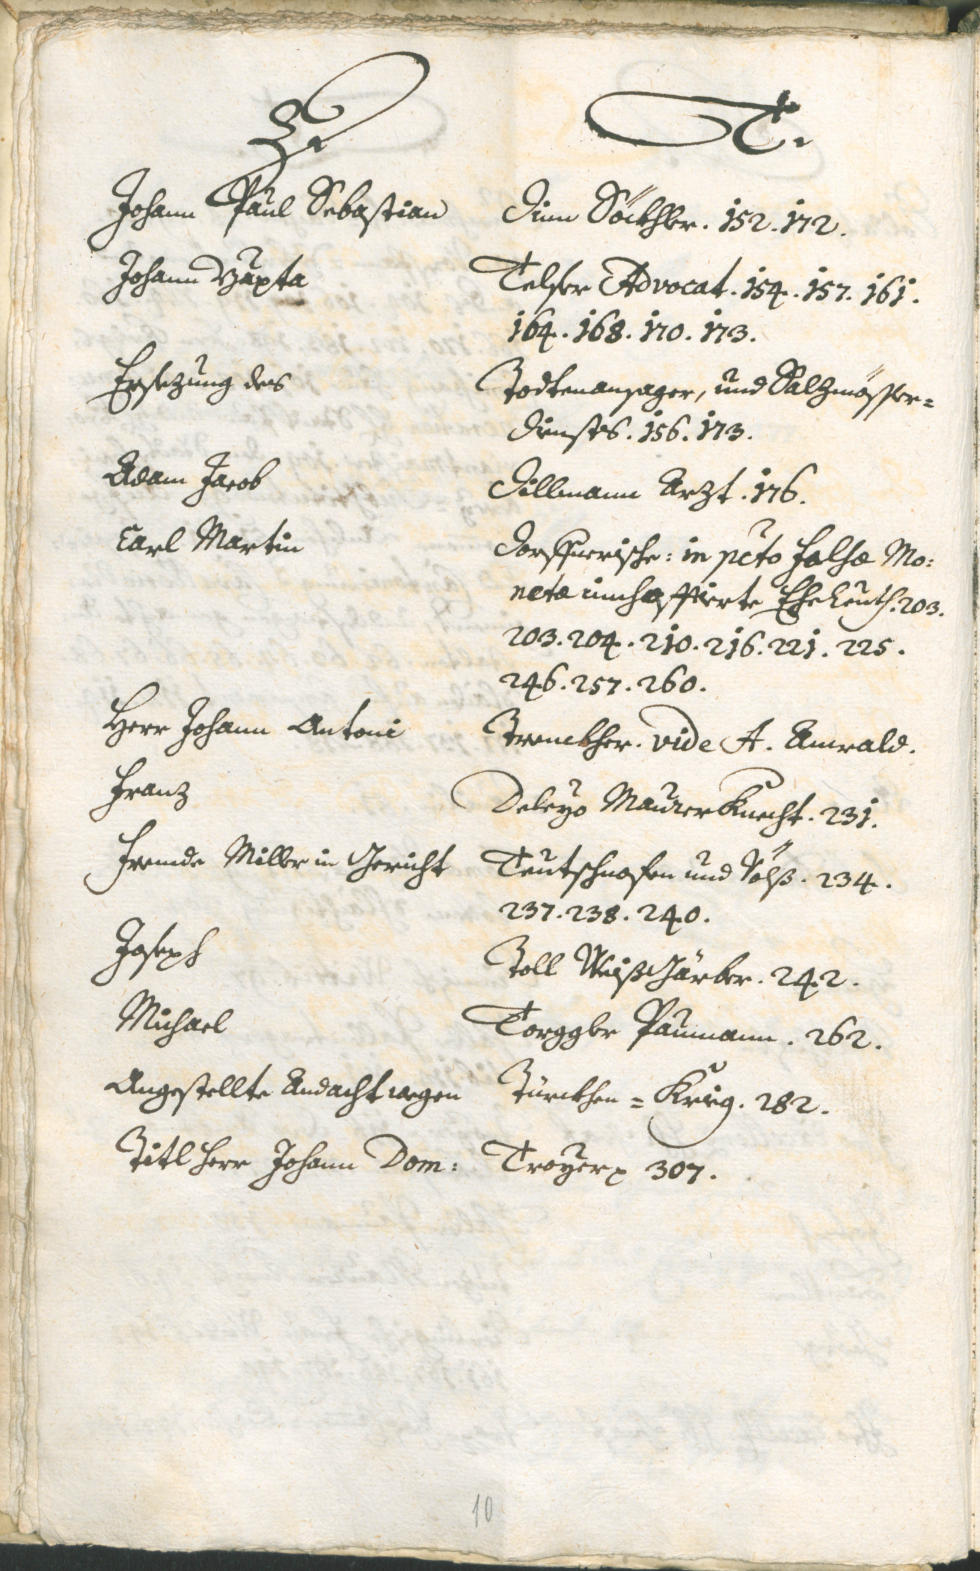 D. T.
Johann Paul Sebastian Dinn Söckhler. 152. 172.
Johann Bapta Telser Advocat. 154. 157. 161.
164. 168. 170. 173.
Ersezung des Todtenansager, und Salzmösser-
Diensts. 156. 173.
Adam Jacob Dillmann Arzt. 176.
Carl Martin in pcto falsæ Mo:
netæ inhafftierte Eheleuth. 203.
203. 204. 210. 216. 221. 225.
246. 257. 260.
Herr Johann Antoni Trenckher. vide A. Amrald.
Franz Deleyo Maurer Knecht. 231.
Fremde Miller in Gericht Teutschnofen und Völß. 234.
237. 238. 240.
Joseph Toll Weißgärber. 242.
Michael Torggler Paumann. 262.
Angestellte Andacht wegen Türckhen = Krieg. 282.
Titl Herr Johann Dom: Troyer 307.
10